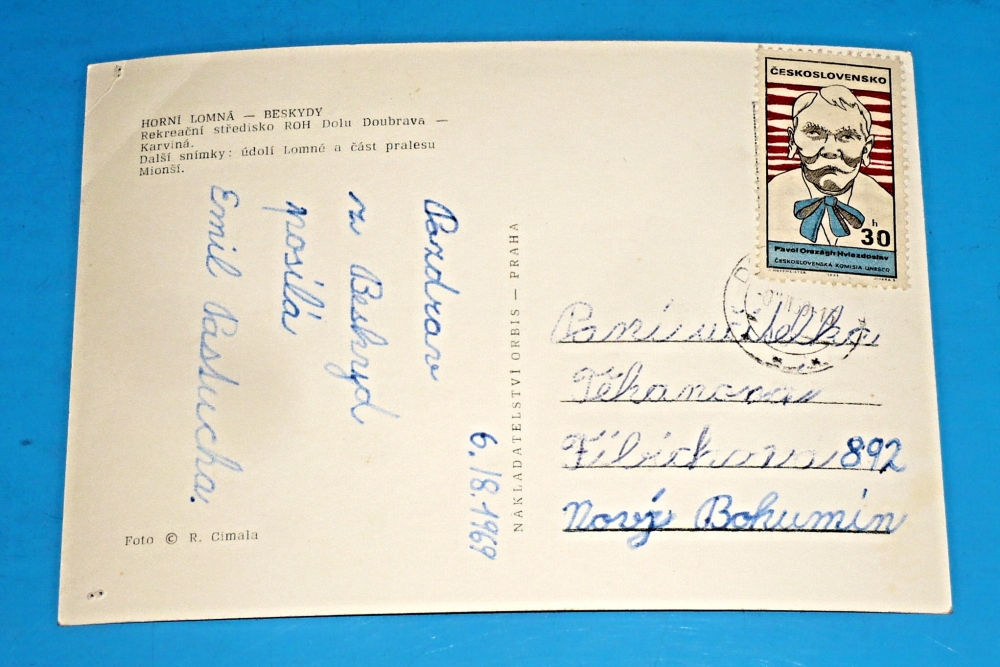 HORNÍ LOMNÁ — BESKYDY
Rekreační středisko ROH Dolu Doubrava —
Karviná.
Další snímky: údolí Lomné a část pralesu
Mionší.
Pozdrav
z Beskyd
posílá
Emil Pastucha.
6./8.1969
Foto © R. Cimala
NAKLADATELSTVÍ ORBIS — PRAHA
ČESKOSLOVENSKO
h
30
Pavol Országh Hviezdoslav
ČESKOSLOVENSKÁ KOMISIA UNESCO
Paní učitelka
892
Nový Bohumín